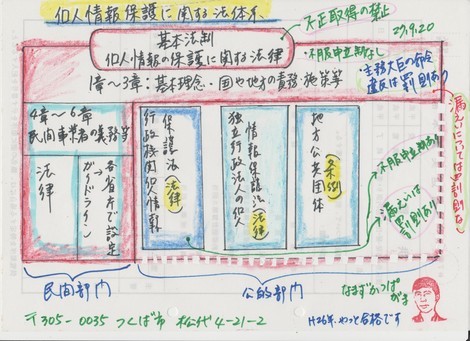 個人情報保護に関する法体系
不正取得の禁止
27.9.20
基本法制
個人情報の保護に関する法律
1章~3章:基本理念・国や地方の責務・施策等
・不服申立制なし
・主務大臣の命令
違反は罰則あり
漏えいについては罰則なし
4章~6章
民間事業者の義務等
法律
各省庁で設定
ガイドライン
行政機関個人情報
保護法(法律)
独立行政法人の個人
情報保護法(法律)
地方公共団体
(条例)
不服申立制あり
漏えいは
罰則あり
民間部門
公的部門
なまずかっぱ
がま
〒305-0035 つくば市 松代4-21-2
H26年、やっと合格です